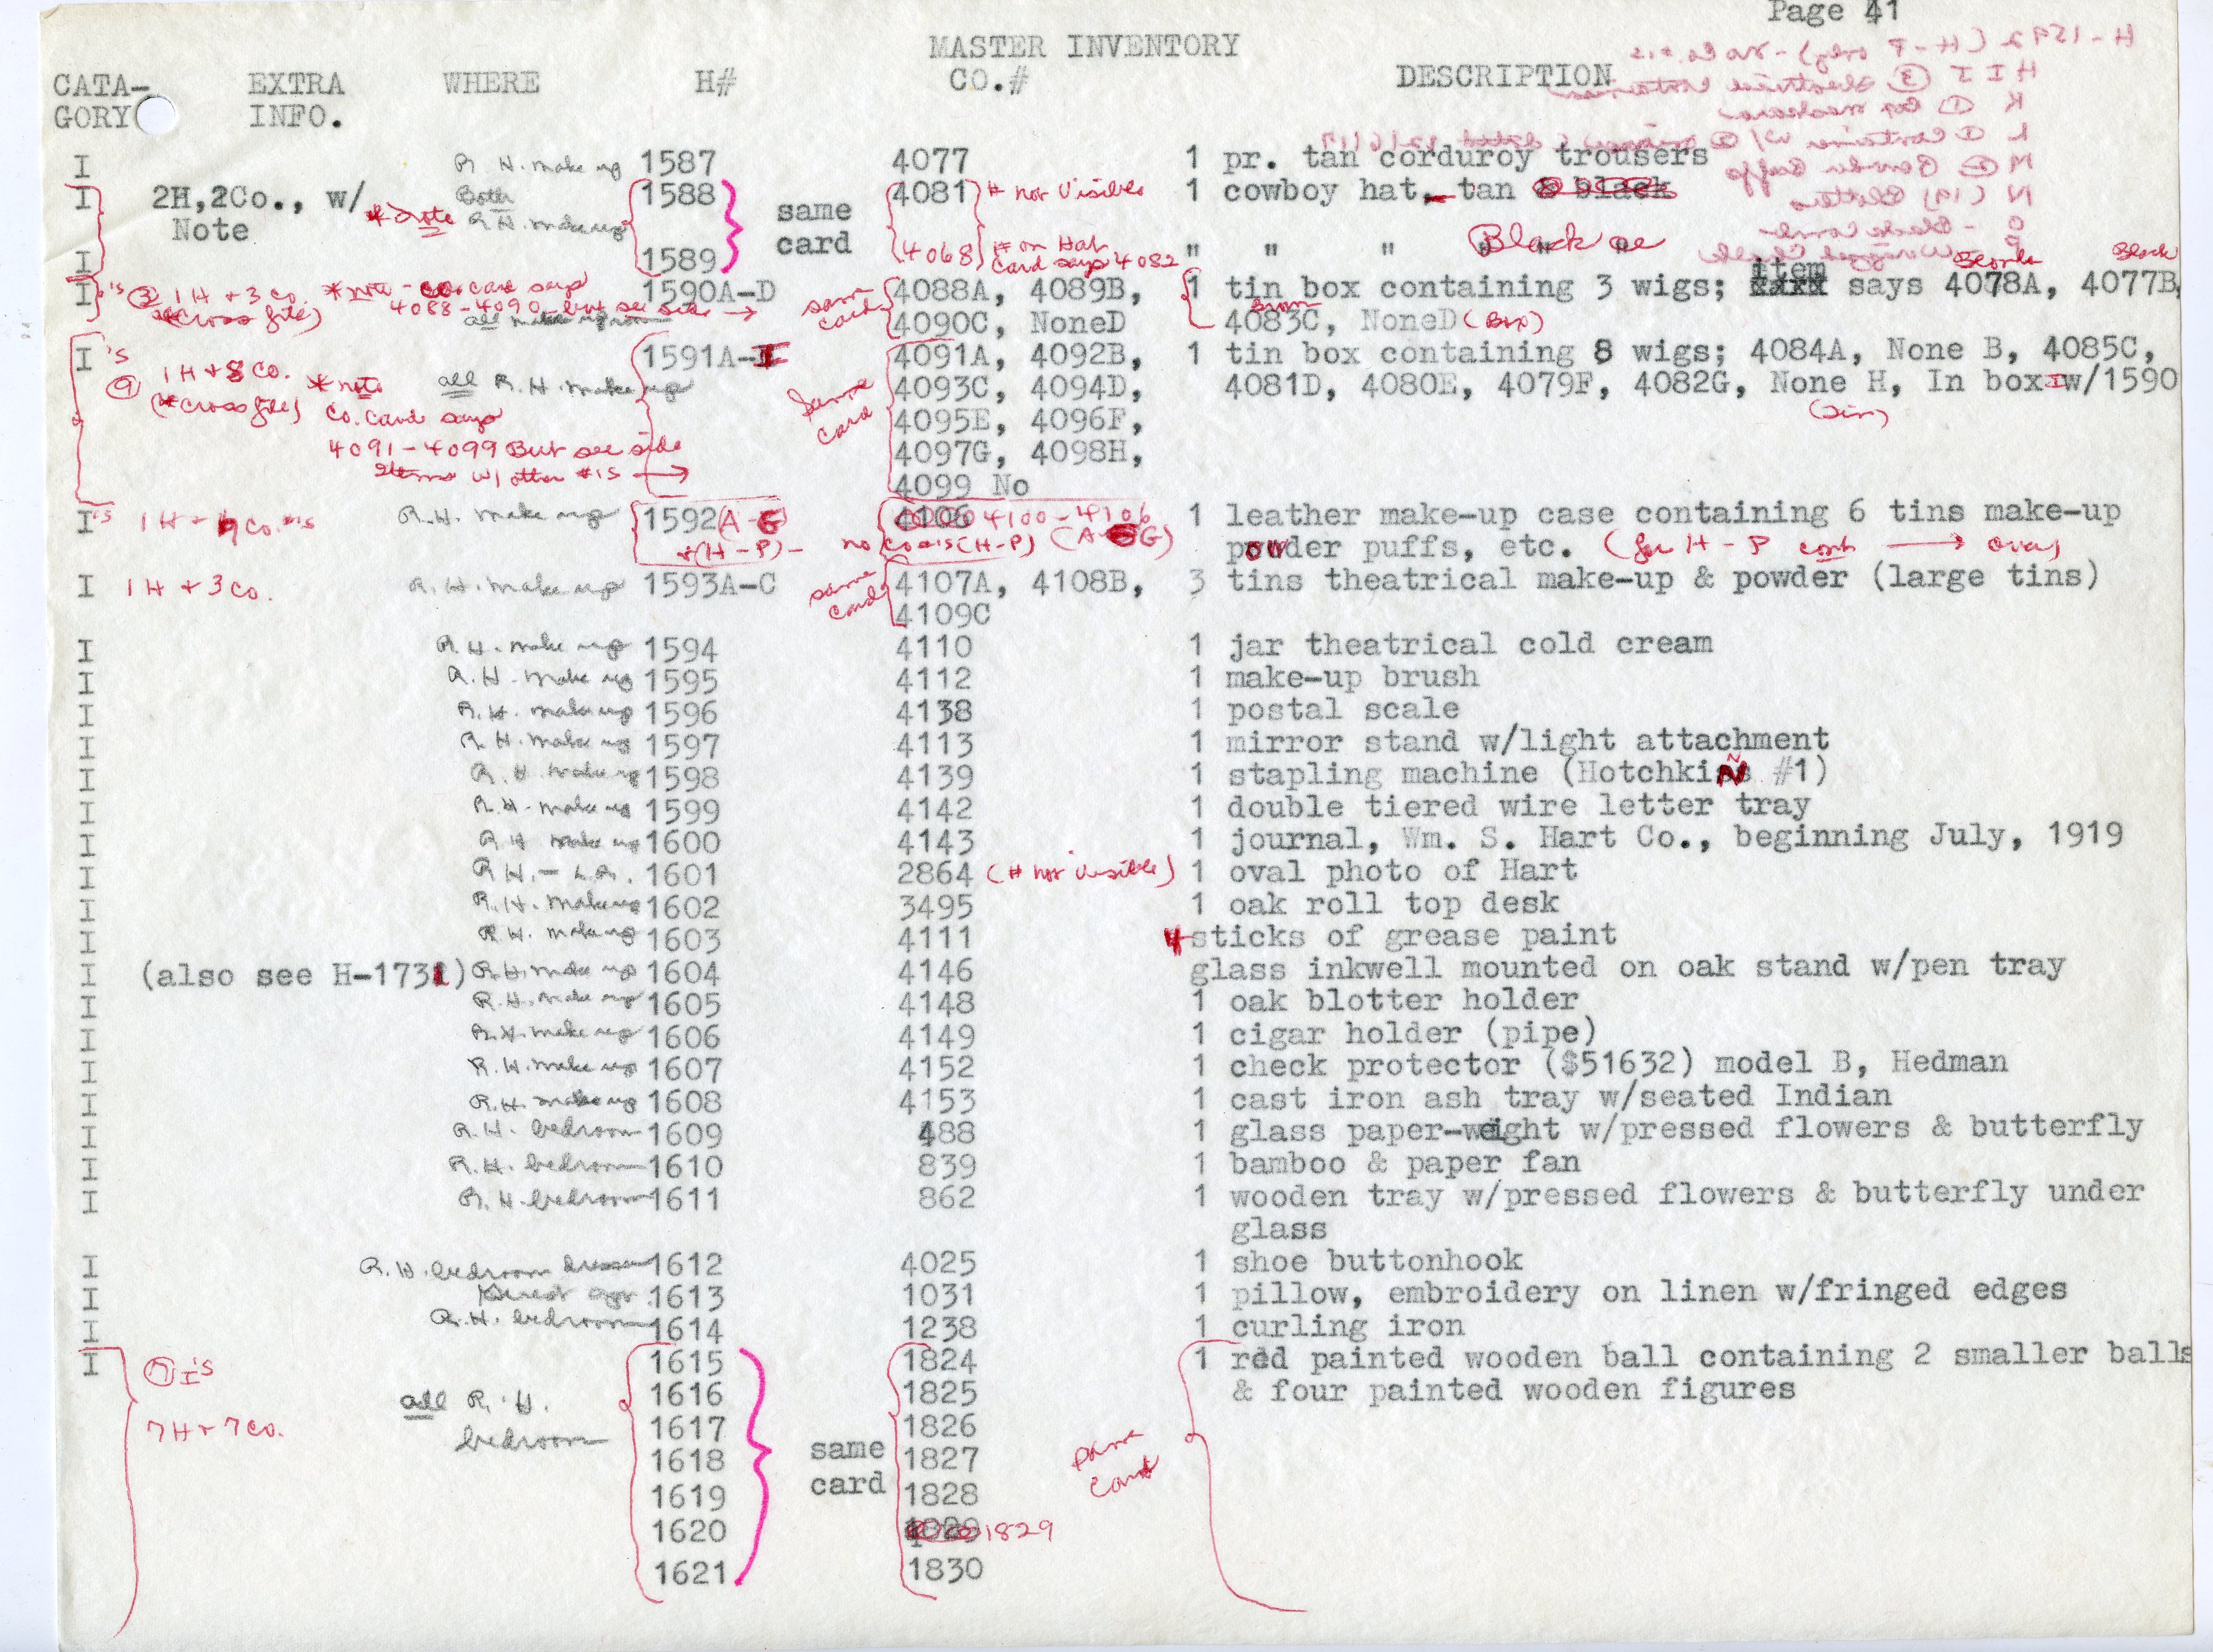 Page 41
MASTER INVENTORY
CATA- EXTRA WHERE H# CO.# DESCRIPTION
GORY INFO.
I R.H. make up 1587 4077 1 pr. tan corduroy trousers
I 2H,2Co., w/ *note Both 1588 same 4081 # not visible 1 cowboy hat, tan & black
Note R.H. make up card
I 1589 4068 # on Hat Card says 4082 " " " " " Black
I's ③ 1H + 3 Co. *note - co. card says 1590A-D same card 4088A, 4089B, 1 tin box containing 3 wigs; item says 4078A, 4077B, Black
(*cross file) 4088-4090 but see side → all make up room 4090C, NoneD 4083C, NoneD (Box)
I's 1H + 8 Co. *note all R.H. make up 1591A-I same card 4091A, 4092B, 1 tin box containing 8 wigs; 4084A, None B, 4085C,
⑨ (*cross file) Co. card says 4093C, 4094D, 4081D, 4080E, 4079F, 4082G, None H, In box I w/1590
4091-4099 But see side 4095E, 4096F, (tin)
Items w/ other #'s → 4097G, 4098H,
4099 No
I's 1H + Co. #'s R.H. make up 1592(A-G) 4106 4100-4106 1 leather make-up case containing 6 tins make-up
+(H-P)- no Co #'s (H-P) (A-G) powder puffs, etc. (for H-P cont → over)
I 1H + 3 Co. R.H. make up 1593A-C same card 4107A, 4108B, 3 tins theatrical make-up & powder (large tins)
4109C
I R.H. make up 1594 4110 1 jar theatrical cold cream
I R.H. make up 1595 4112 1 make-up brush
I R.H. make up 1596 4138 1 postal scale
I R.H. make up 1597 4113 1 mirror stand w/light attachment
I R.H. make up 1598 4139 1 stapling machine (Hotchkiss #1)
I R.H. make up 1599 4142 1 double tiered wire letter tray
I R.H. make up 1600 4143 1 journal, Wm. S. Hart Co., beginning July, 1919
I R.H. - L.R. 1601 2864 (# not visible) 1 oval photo of Hart
I R.H. make up 1602 3495 1 oak roll top desk
I R.H. make up 1603 4111 4 sticks of grease paint
I (also see H-1731) R.H. make up 1604 4146 glass inkwell mounted on oak stand w/pen tray
I R.H. make up 1605 4148 1 oak blotter holder
I R.H. make up 1606 4149 1 cigar holder (pipe)
I R.H. make up 1607 4152 1 check protector ($51632) model B, Hedman
I R.H. make up 1608 4153 1 cast iron ash tray w/seated Indian
I R.H. bedroom 1609 488 1 glass paper-weight w/pressed flowers & butterfly
I R.H. bedroom 1610 839 1 bamboo & paper fan
I R.H. bedroom 1611 862 1 wooden tray w/pressed flowers & butterfly under
glass
I R.H. bedroom 1612 4025 1 shoe buttonhook
I 1613 1031 1 pillow, embroidery on linen w/fringed edges
I R.H. bedroom 1614 1238 1 curling iron
I ⑦ I's 1615 1824 1 red painted wooden ball containing 2 smaller balls
all R.H. 1616 1825 & four painted wooden figures
7H + 7 Co. bedroom 1617 1826
1618 same 1827 same
1619 card 1828 card
1620 1829
1621 1830